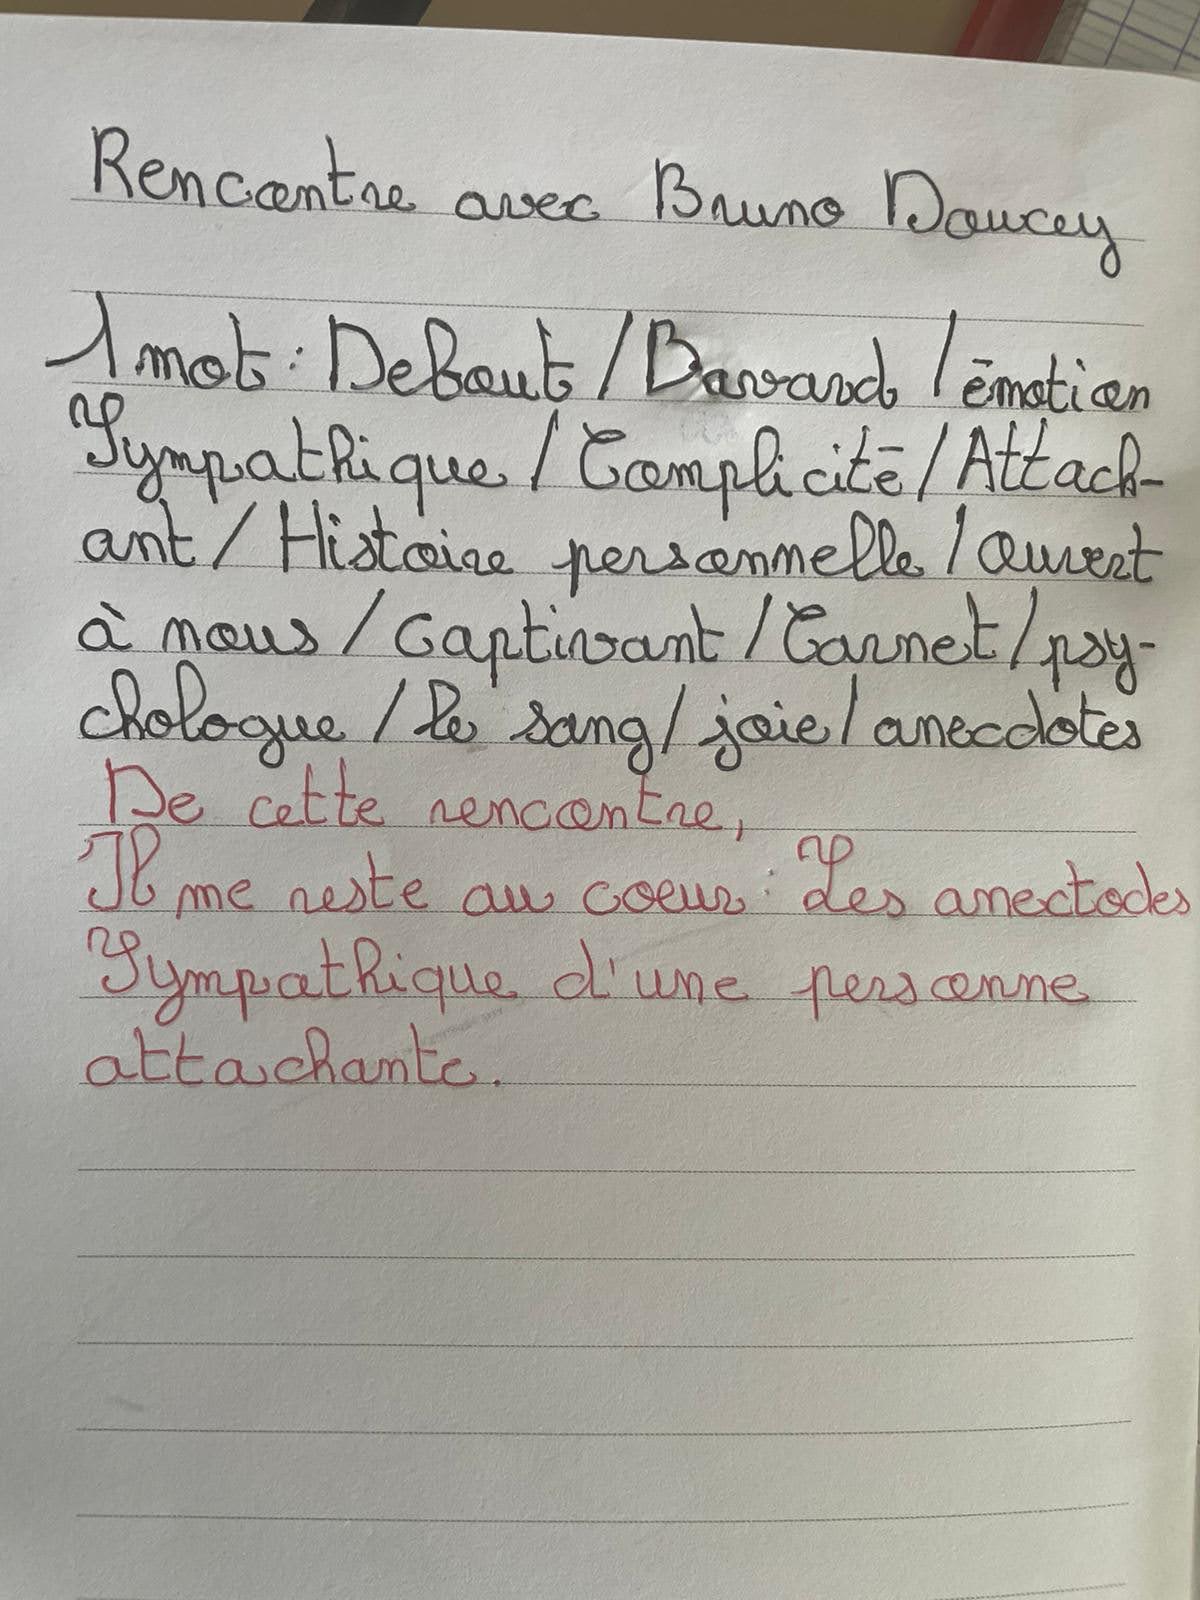 Rencontre avec Bruno Doucey
1 mot : Debout / Bavard / émotion
Sympathique / Complicité / Attach-
ant / Histoire personnelle / ouvert
à nous / captivant / Carnet / psy-
chologue / le sang / joie / anecdotes
De cette rencontre,
Il me reste au coeur : Les anectodes
Sympathique d'une personne
attachante.